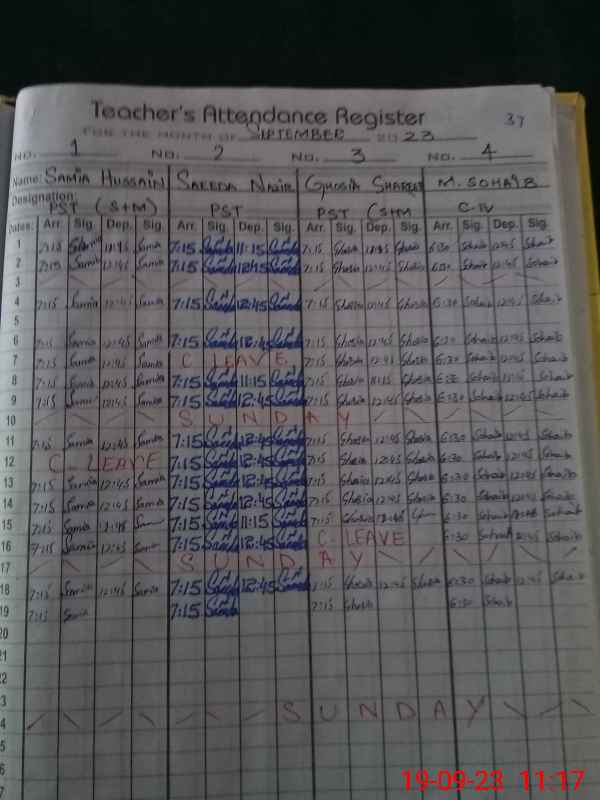 Teacher's Attendance Register
37
FOR THE MONTH OF SEPTEMBER 2023
NO. 1 NO. 2 NO. 3 NO. 4
Name: SAMIA HUSSAIN SAEEDA NAZIR GHOSIA M. SOHAIB
Designation: PST (S+M) PST PST (S+M C-IV
Dates: Arr. Sig. Dep. Sig. Arr. Sig. Dep. Sig. Arr. Sig. Dep. Sig. Arr. Sig. Dep. Sig.
1 7:15 Samia Samia 7:15 Saeeda 11:15 Saeeda 7:15 Ghosia Ghosia 6:30 Sohaib 12:45 Sohaib
2 7:15 Samia 12:45 Samia 7:15 Saeeda 12:45 Saeeda 7:15 Ghosia 12:45 Ghosia 6:30 Sohaib 12:45 Sohaib
3
4 7:15 Samia 12:45 Samia 7:15 Saeeda 12:45 Saeeda 7:15 Ghosia 12:45 Ghosia 6:30 Sohaib 12:45 Sohaib
5
6 7:15 Samia 12:45 Samia 7:15 Saeeda 12:45 Saeeda 7:15 Ghosia 12:45 Ghosia 6:30 Sohaib 12:45 Sohaib
7 7:15 Samia 12:45 Samia C LEAVE 7:15 Ghosia 12:45 Ghosia 6:30 Sohaib 12:45 Sohaib
8 7:15 Samia 12:45 Samia 7:15 Saeeda 11:15 Saeeda 7:15 Ghosia 11:15 Ghosia 6:30 Sohaib Sohaib
9 7:15 Samia 12:45 Samia 7:15 Saeeda 12:45 Saeeda 7:15 Ghosia 12:45 Ghosia 6:30 Sohaib 12:45 Sohaib
10 SUNDAY
11 7:15 Samia 12:45 Samia 7:15 Saeeda 12:45 Saeeda 7:15 Ghosia 12:45 Ghosia 6:30 Sohaib 12:45 Sohaib
12 C-LEAVE 7:15 Saeeda 12:45 Saeeda 7:15 Ghosia 12:45 Ghosia 6:30 Sohaib 12:45 Sohaib
13 7:15 Samia 12:45 Samia 7:15 Saeeda 12:45 Saeeda 7:15 Ghosia 12:45 Ghosia 6:30 Sohaib 12:45 Sohaib
14 7:15 Samia 12:45 Samia 7:15 Saeeda 12:45 Saeeda 7:15 Ghosia 12:45 Ghosia 6:30 Sohaib 12:45 Sohaib
15 7:15 Samia 7:15 Saeeda 11:15 Saeeda 7:15 Ghosia 6:30 Sohaib Sohaib
16 7:15 Samia 12:45 7:15 Saeeda 12:45 Saeeda C-LEAVE 6:30 Sohaib 12:45 Sohaib
17 SUNDAY
18 7:15 Samia 12:45 Samia 7:15 Saeeda 12:45 Saeeda 7:15 Ghosia 12:45 Ghosia 6:30 Sohaib 12:45 Sohaib
19 7:15 Samia 7:15 Saeeda 7:15 Ghosia 6:30 Sohaib
20
21
22
3 SUNDAY
4
5
6
7
19-09-23 11:17